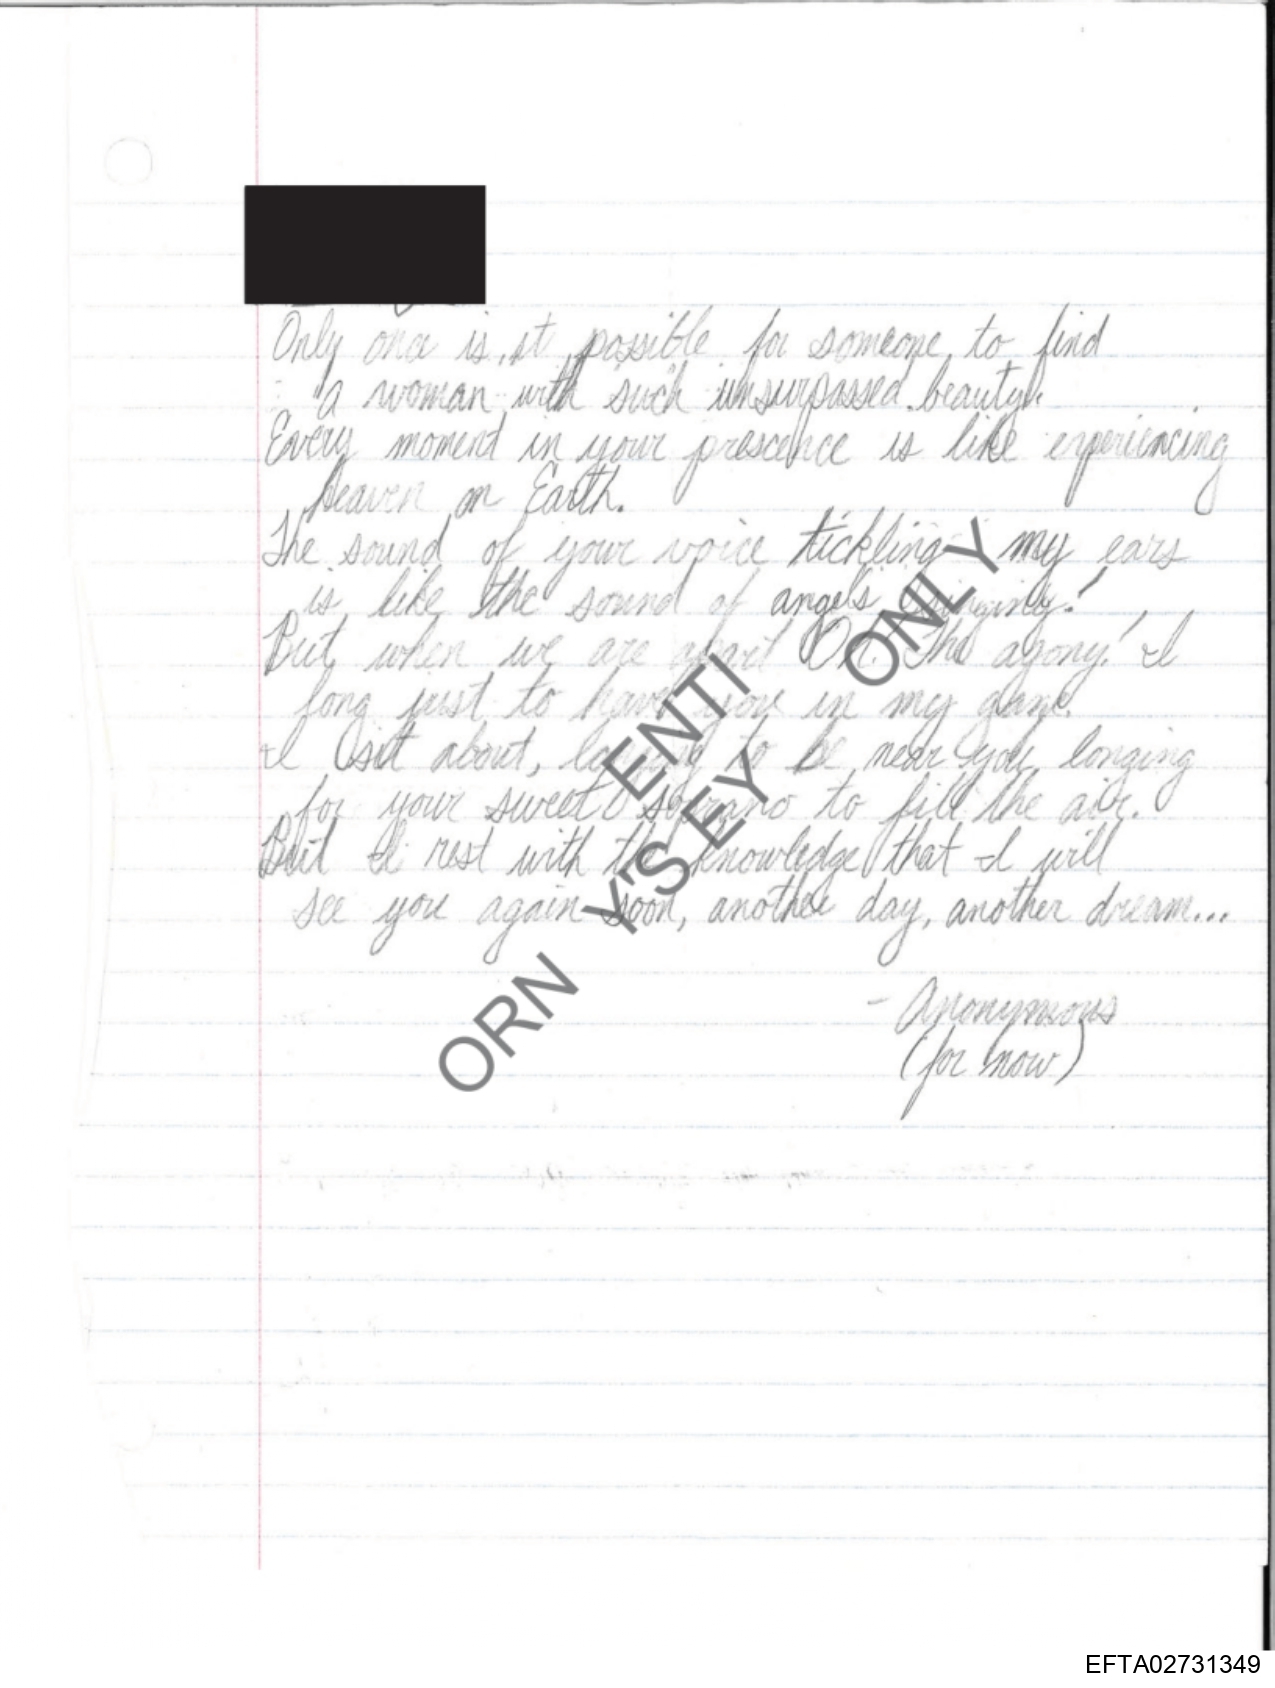 Only once is it possible for someone to find
a woman with such unsurpassed beauty.
Every moment in your prescence is like experiencing
heaven on Earth.
The sound of your voice tickling my ears
is like the sound of angels singing!
But when we are apart Oh! The agony! I
long just to have you in my gaze.
I sit about, longing to be near you, longing
for your sweet soprano to fill the air.
But I rest with the knowledge that I will
see you again soon, another day, another dream...
- Anonymous
(for now)
ORN Y'S EY
ENTI ONLY
EFTA02731349